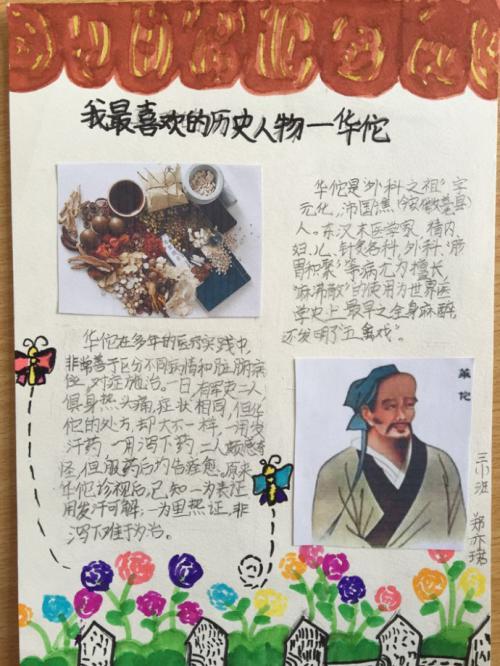 我最喜欢的历史人物—华佗
华佗是“外科之祖”字
元化，沛国谯(今安徽亳县)
人。东汉末医学家，精内、
妇、儿、针灸各科，外科，“肠
胃积聚”等病尤为擅长，
“麻沸散”的使用为世界医
学史上最早之全身麻醉，
还发明了“五禽戏”。
华佗在多年的医疗实践中，
非常善于区分不同病情和脏腑病
位，对症施治。一日，有军吏二人，
俱身热头痛，症状相同，但华
佗的处方，却大不一样，一用发
汗药，一用泻下药，二人颇感奇
怪，但服药后均告痊愈。原来
华佗诊视后，已知一为表证，
用发汗可解；一为里热证，非
泻下难于为治。
華佗
三(1)班 郑亦珺